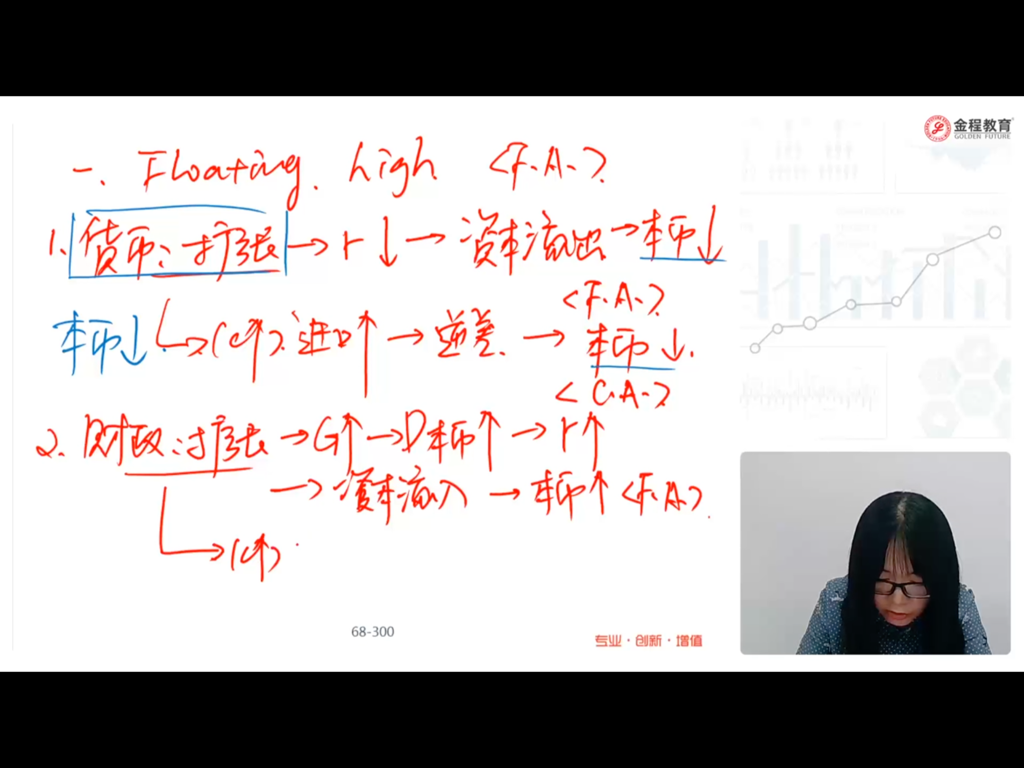 金程教育
GOLDEN FUTURE
一. Floating. high <F.A.>
1. 货币:扩张→r↓→资本流出→本币↓
<F.A.>
本币↓ (C↑)进口↑→逆差.→本币↓.
<C.A.>
2. 财政:扩张→G↑→D本币↑→r↑
→资本流入→本币↑<F.A.>.
→(C↑)
68-300
专业·创新·增值